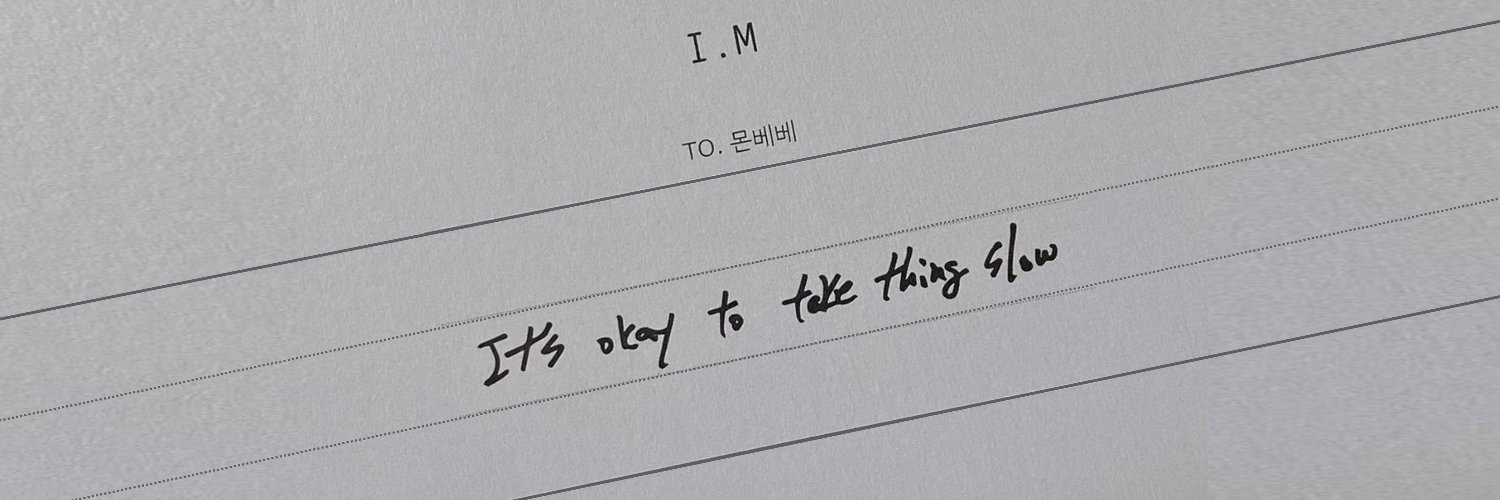 I.M
TO. 몬베베
It's okay to take thing slow